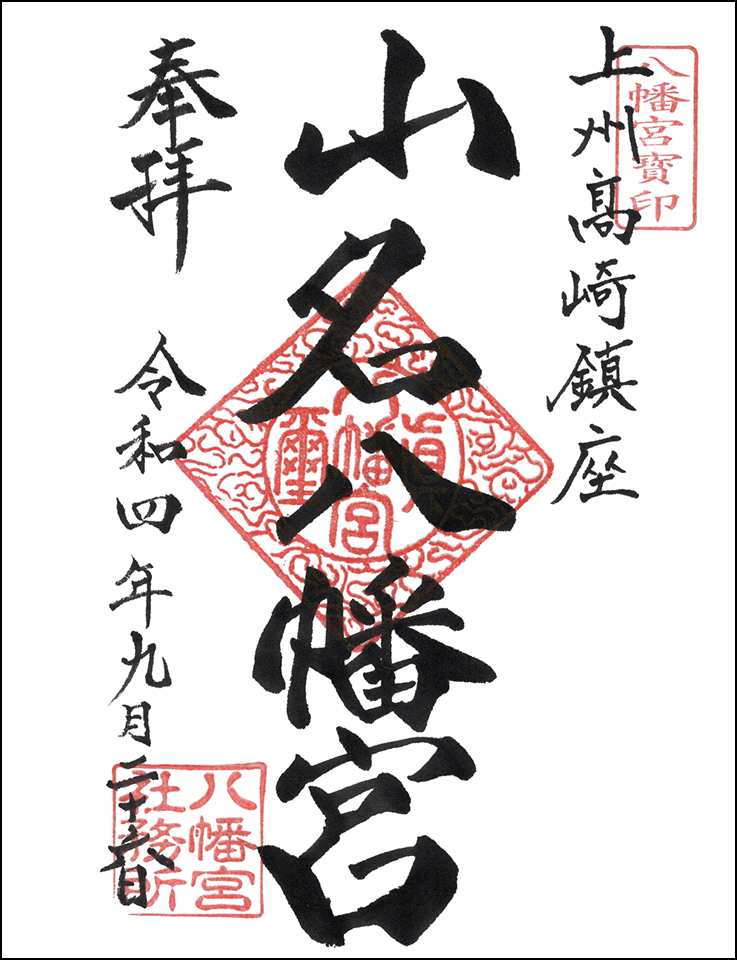 八幡宮寳印
上州髙崎鎮座
山名八幡宮
奉拝
令和四年九月二十六日
八幡宮
社務所